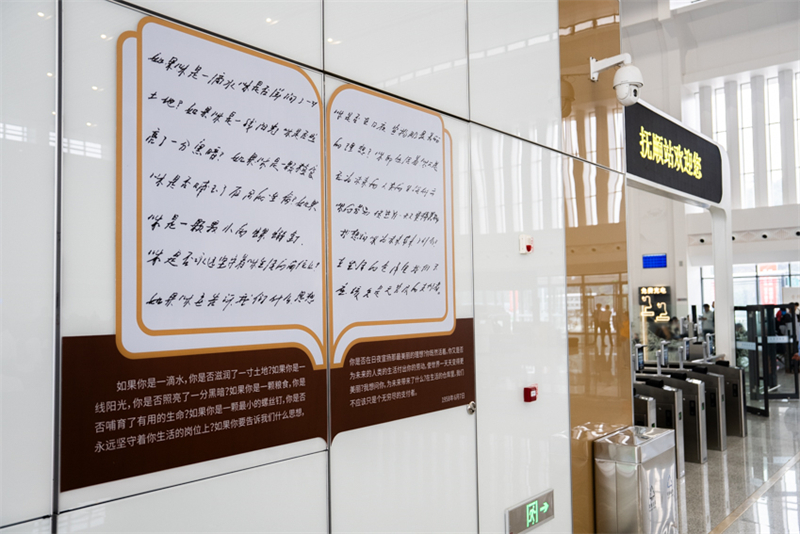 如果你是一滴水,你是否滋润了一寸
土地?如果你是一线阳光,你是否照
亮了一分黑暗?如果你是一颗粮食
你是否哺育了有用的生命?如果
你是一颗最小的螺丝钉,
你是否永远坚守着你生活的岗位上?
如果你要告诉我们什么思想
你是否在日夜宣扬那最美丽
的理想?你既然活着你又是
否为未来的人类
如果你是一滴水,你是否滋润了一寸土地?如果你是一
线阳光,你是否照亮了一分黑暗?如果你是一颗粮食,你是
否哺育了有用的生命?如果你是一颗最小的螺丝钉,你是否
永远坚守着你生活的岗位上?如果你要告诉我们什么思想,
你是否在日夜宣扬那最美丽的理想?你既然活着,你又是否
为未来的人类的生活付出你的劳动,使世界一天天变得更
美丽?我想问你,为未来带来了什么?在生活的仓库里,我们
不应该只是个无穷尽的支付者。
1958年6月7日
抚顺站欢迎您
免费充电